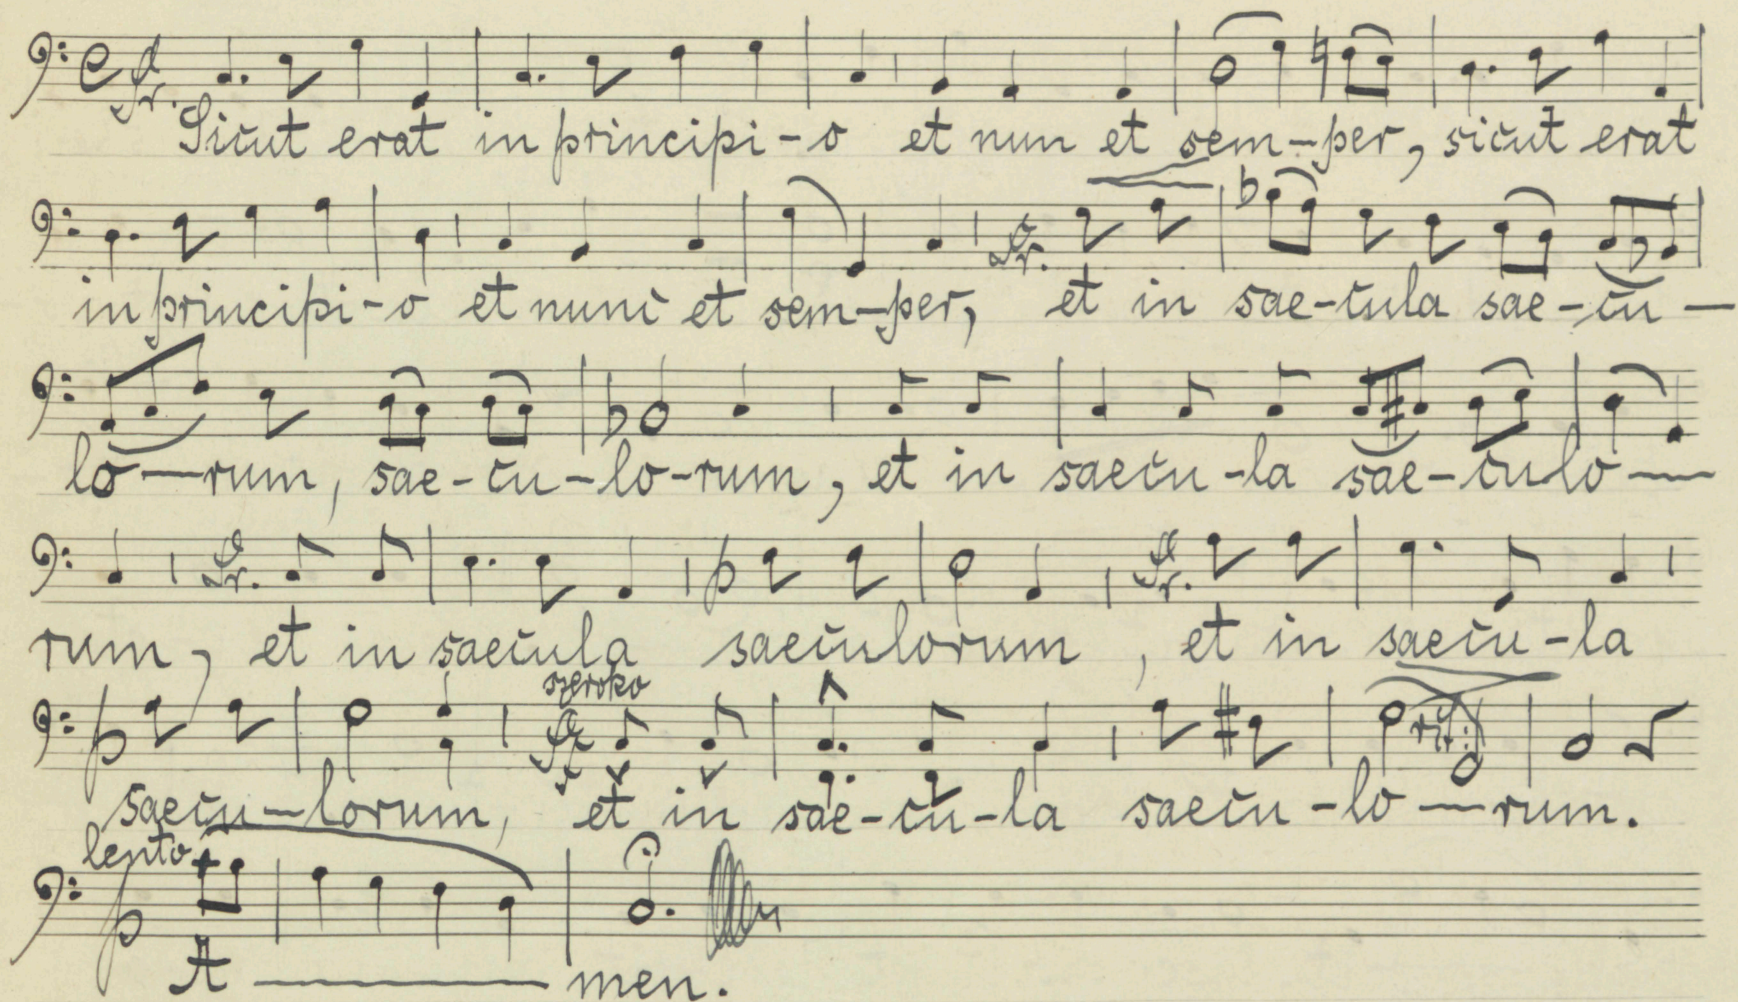 Sicut erat in principi-o et nun et sem-per, sicut erat
in principi-o et nunc et sem-per, et in sae-cula sae-cu-
lo-rum, sae-cu-lo-rum, et in saecu-la sae-culo-
rum, et in saecula saeculorum, et in saecu-la
szeroko
p saecu-lorum, et in sae-cu-la saecu-lo-rum.
rit.
lento
p A - men.